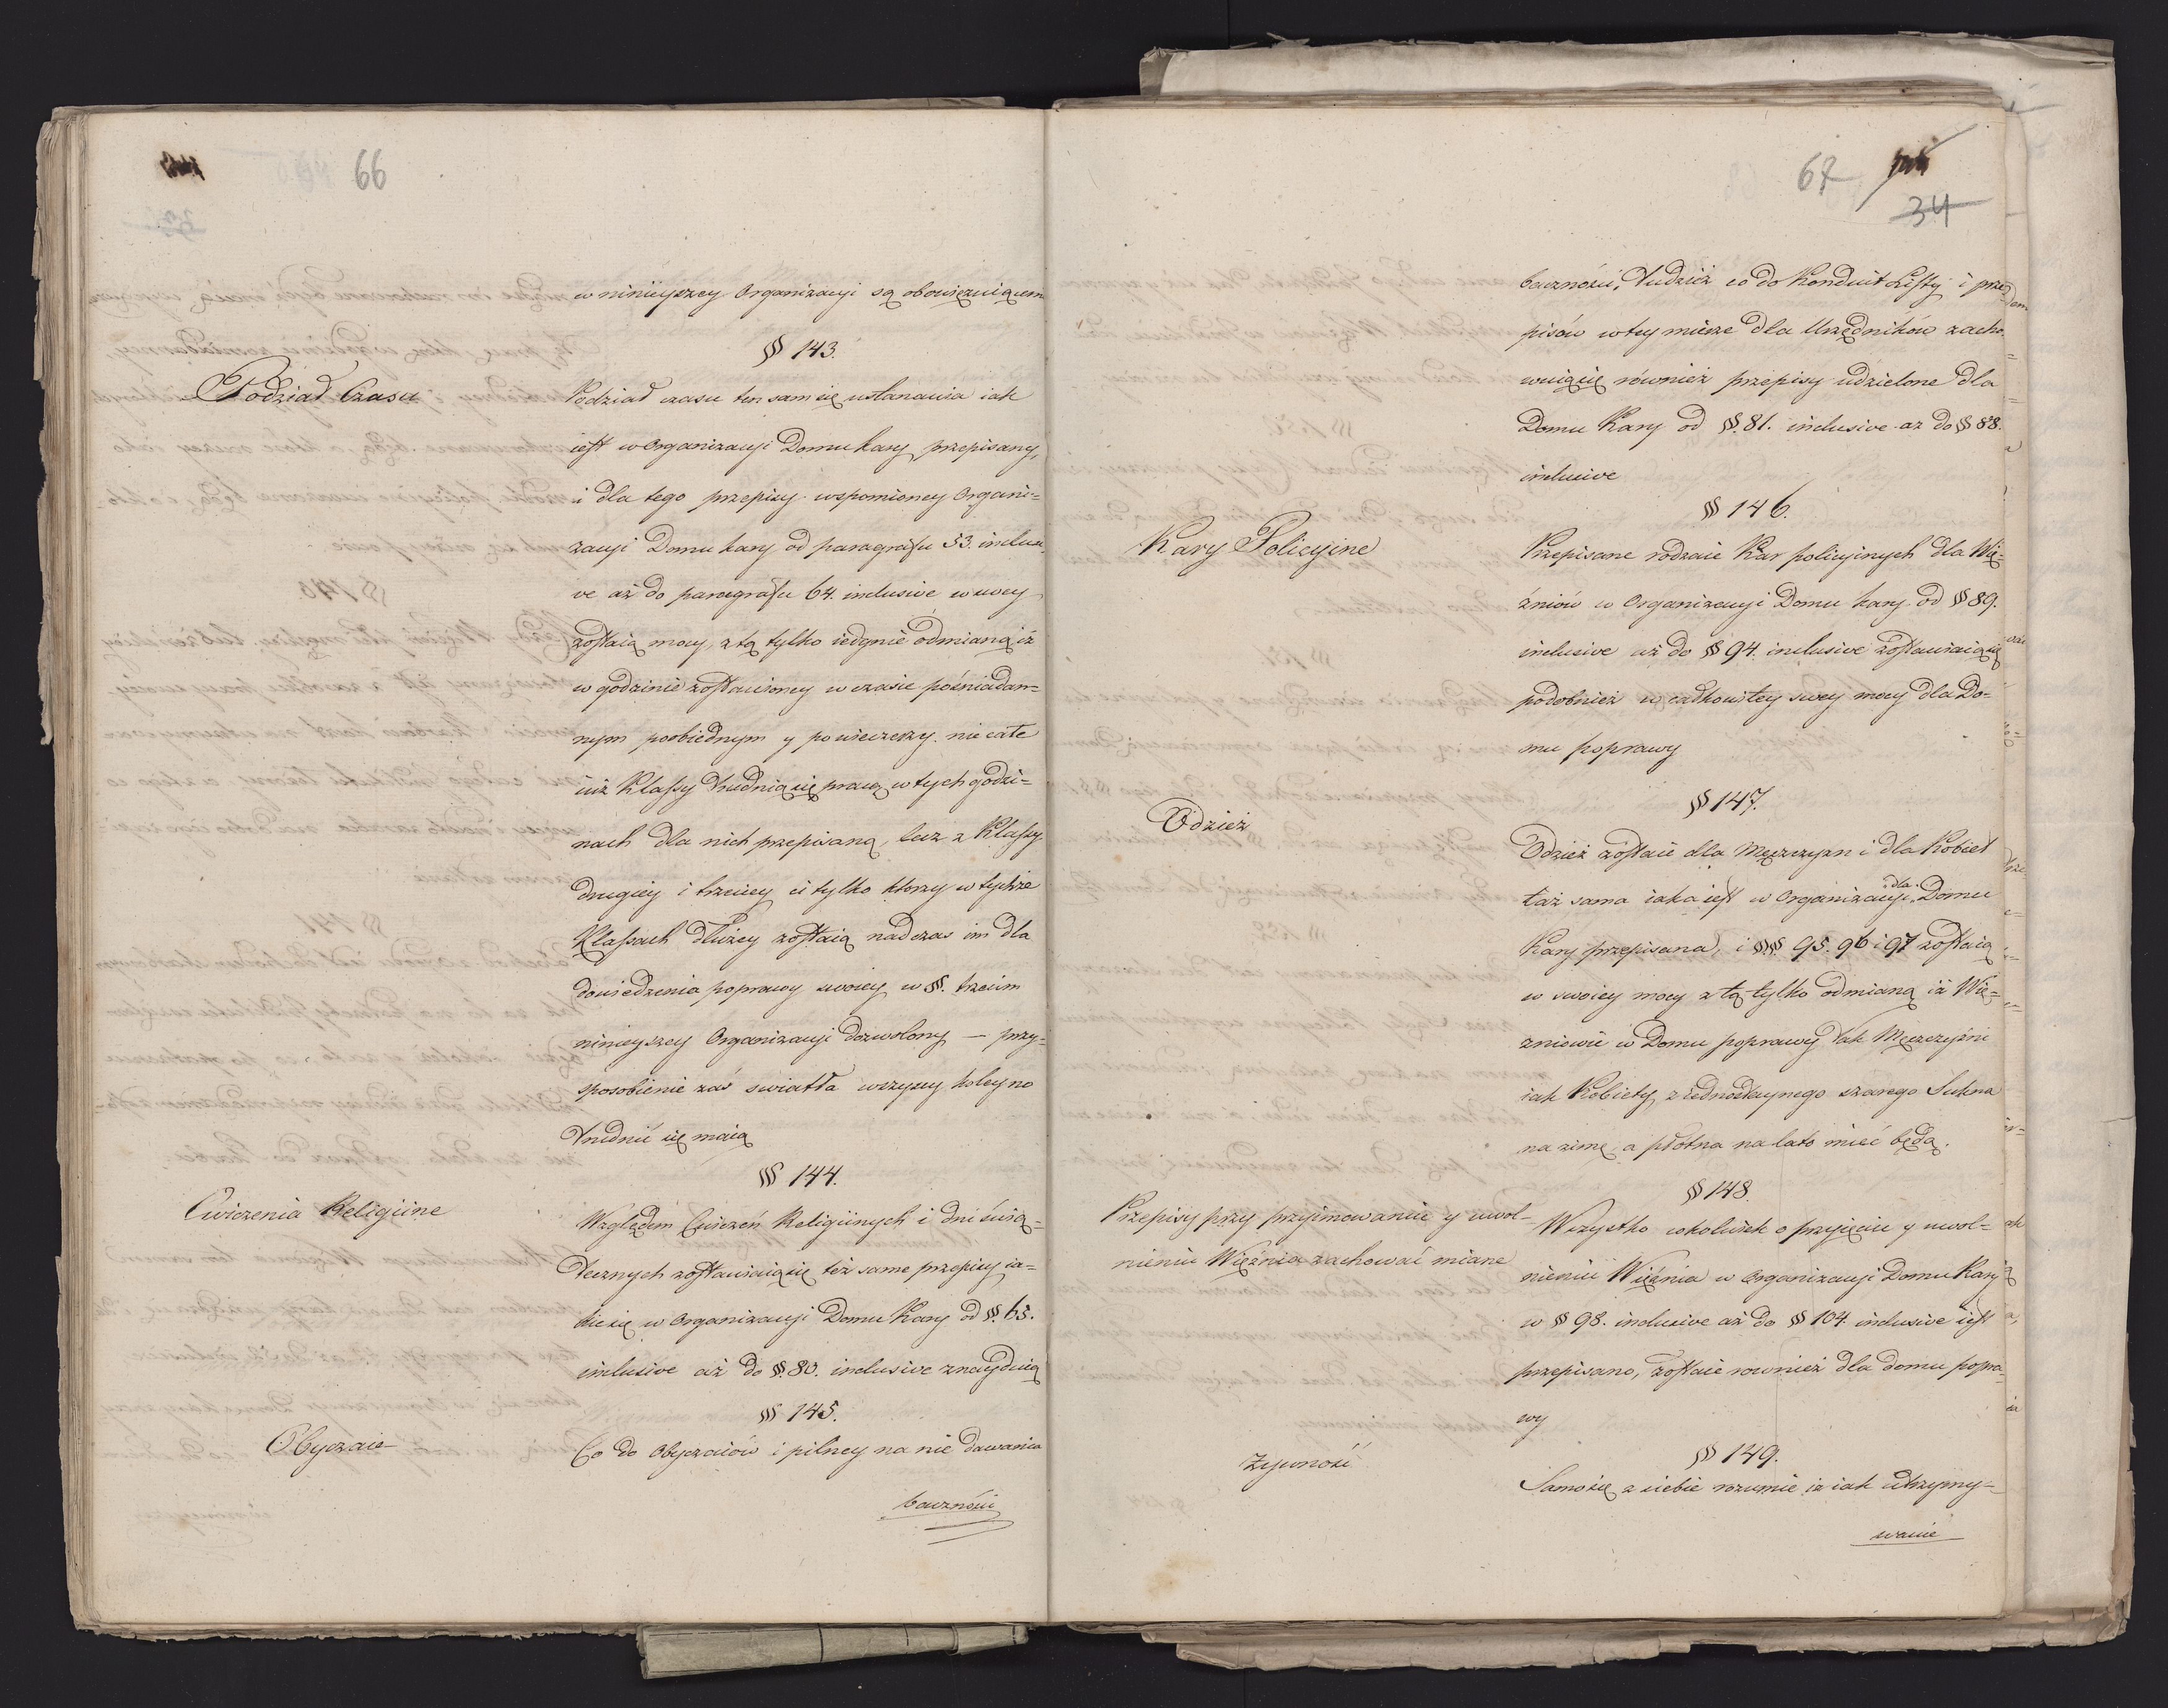 66
w ninieyszey Organizacyi są obowięzuiącem
§§ 143.
Podział Czasu
Podział czasu ten sam się ustanawia iak
iest w Organizacyi Domu kary przepisany,
i dla tego przepisy wspomioney Organi=
zacyi Domu kary od paragrafu 53. inclusi
ve aż do paragrafu 64. inclusive w swey
zostaią mocy, z tą tylko iedynie odmianą iż
w godzinie zostawioney w czasie pośniadan=
nym poobiednym y po wieczerzy nie całe
iuż Klassy trudnią się pracą w tych godzi=
nach dla nich przepisaną, lecz z Klassy
drugiey i trzeciey ci tylko ktorzy w tychże
Klassach dłużey zostaią nad czas im dla
dowiedzenia poprawy swoiey w §§. trzecim
ninieyszey Organizacyi dozwolony — przy=
sposobienie zaś swiatła wszyscy koleyno
trudnić się maią
§§ 144.
Cwiczenia Religiine
Względem Cwiczeń Religiinych i dni świą=
tecznych zostawiaią się też same przepisy ia=
kie się w Organizacyi Domu Kary od §§. 65.
inclusive aż do §§. 80. inclusive znayduią
§§ 145.
Obyczaie
Co do Obyczaiów i pilney na nie dawania
baczności
67
34
baczności, tudzież co do Konduit Listy i prze
pisów w tey mierze dla Urzędników zacho
wuią się również przepisy udzielone dla
Domu Kary od §§. 81. inclusive aż do §§ 88.
inclusive
§§ 146.
Kary Policyine
Przepisane rodzaie Kar policyinych dla Wię=
zniów w Organizacyi Domu kary od §§ 89.
inclusive aż do §§ 94. inclusive zostawiaią się
podobnież w całkowitey swey mocy dla Do=
mu poprawy
§§ 147.
Odzież
Odzież zostaie dla Mężczyzn i dla Kobiet
taż sama iaka iest w Organizacyi dla Domu
Kary przepisana, i §§§. 95. 96 i 97 zostaią
w swoiey mocy z tą tylko odmianą iż Wię=
zniowie w Domu poprawy tak Mężczyźni
iak Kobiety z iednostaynego szarego Sukna
na zimę, a płótna na lato mieć będą.
§ 148.
Przepisy przy przyimowaniu y uwol-
nieniu Więźnia zachować miane
Wszystko cokolwiek o przyięciu y uwol=
nieniu Więźnia w Organizacyi Domu Kary
w §§ 98. inclusive aż do §§ 104. inclusive iest
przepisano, zostaie rownież dla domu popra=
wy
§§ 149.
Zywność
Samo się z siebie rozumie iż iak utrzymy=
wanie